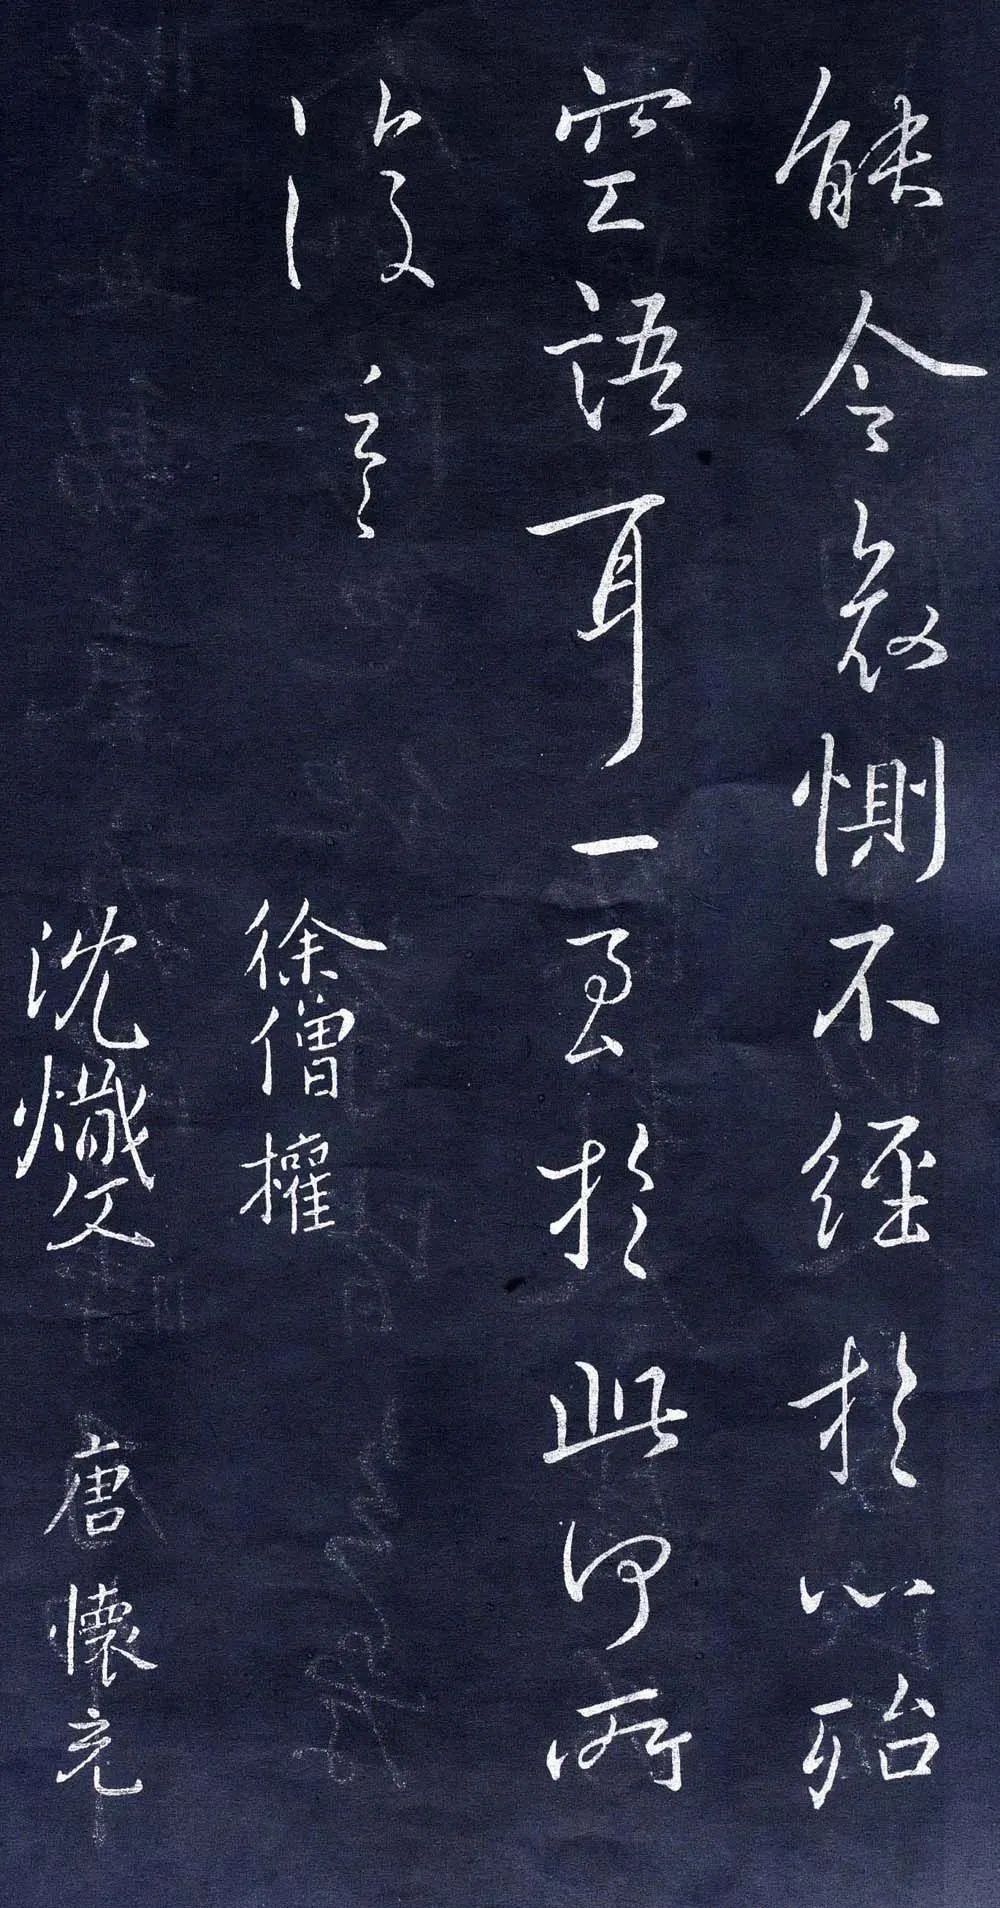 能令哀惻不經於心殆
空語耳一至於此何所
復言
徐僧權
沈熾文 唐懷充